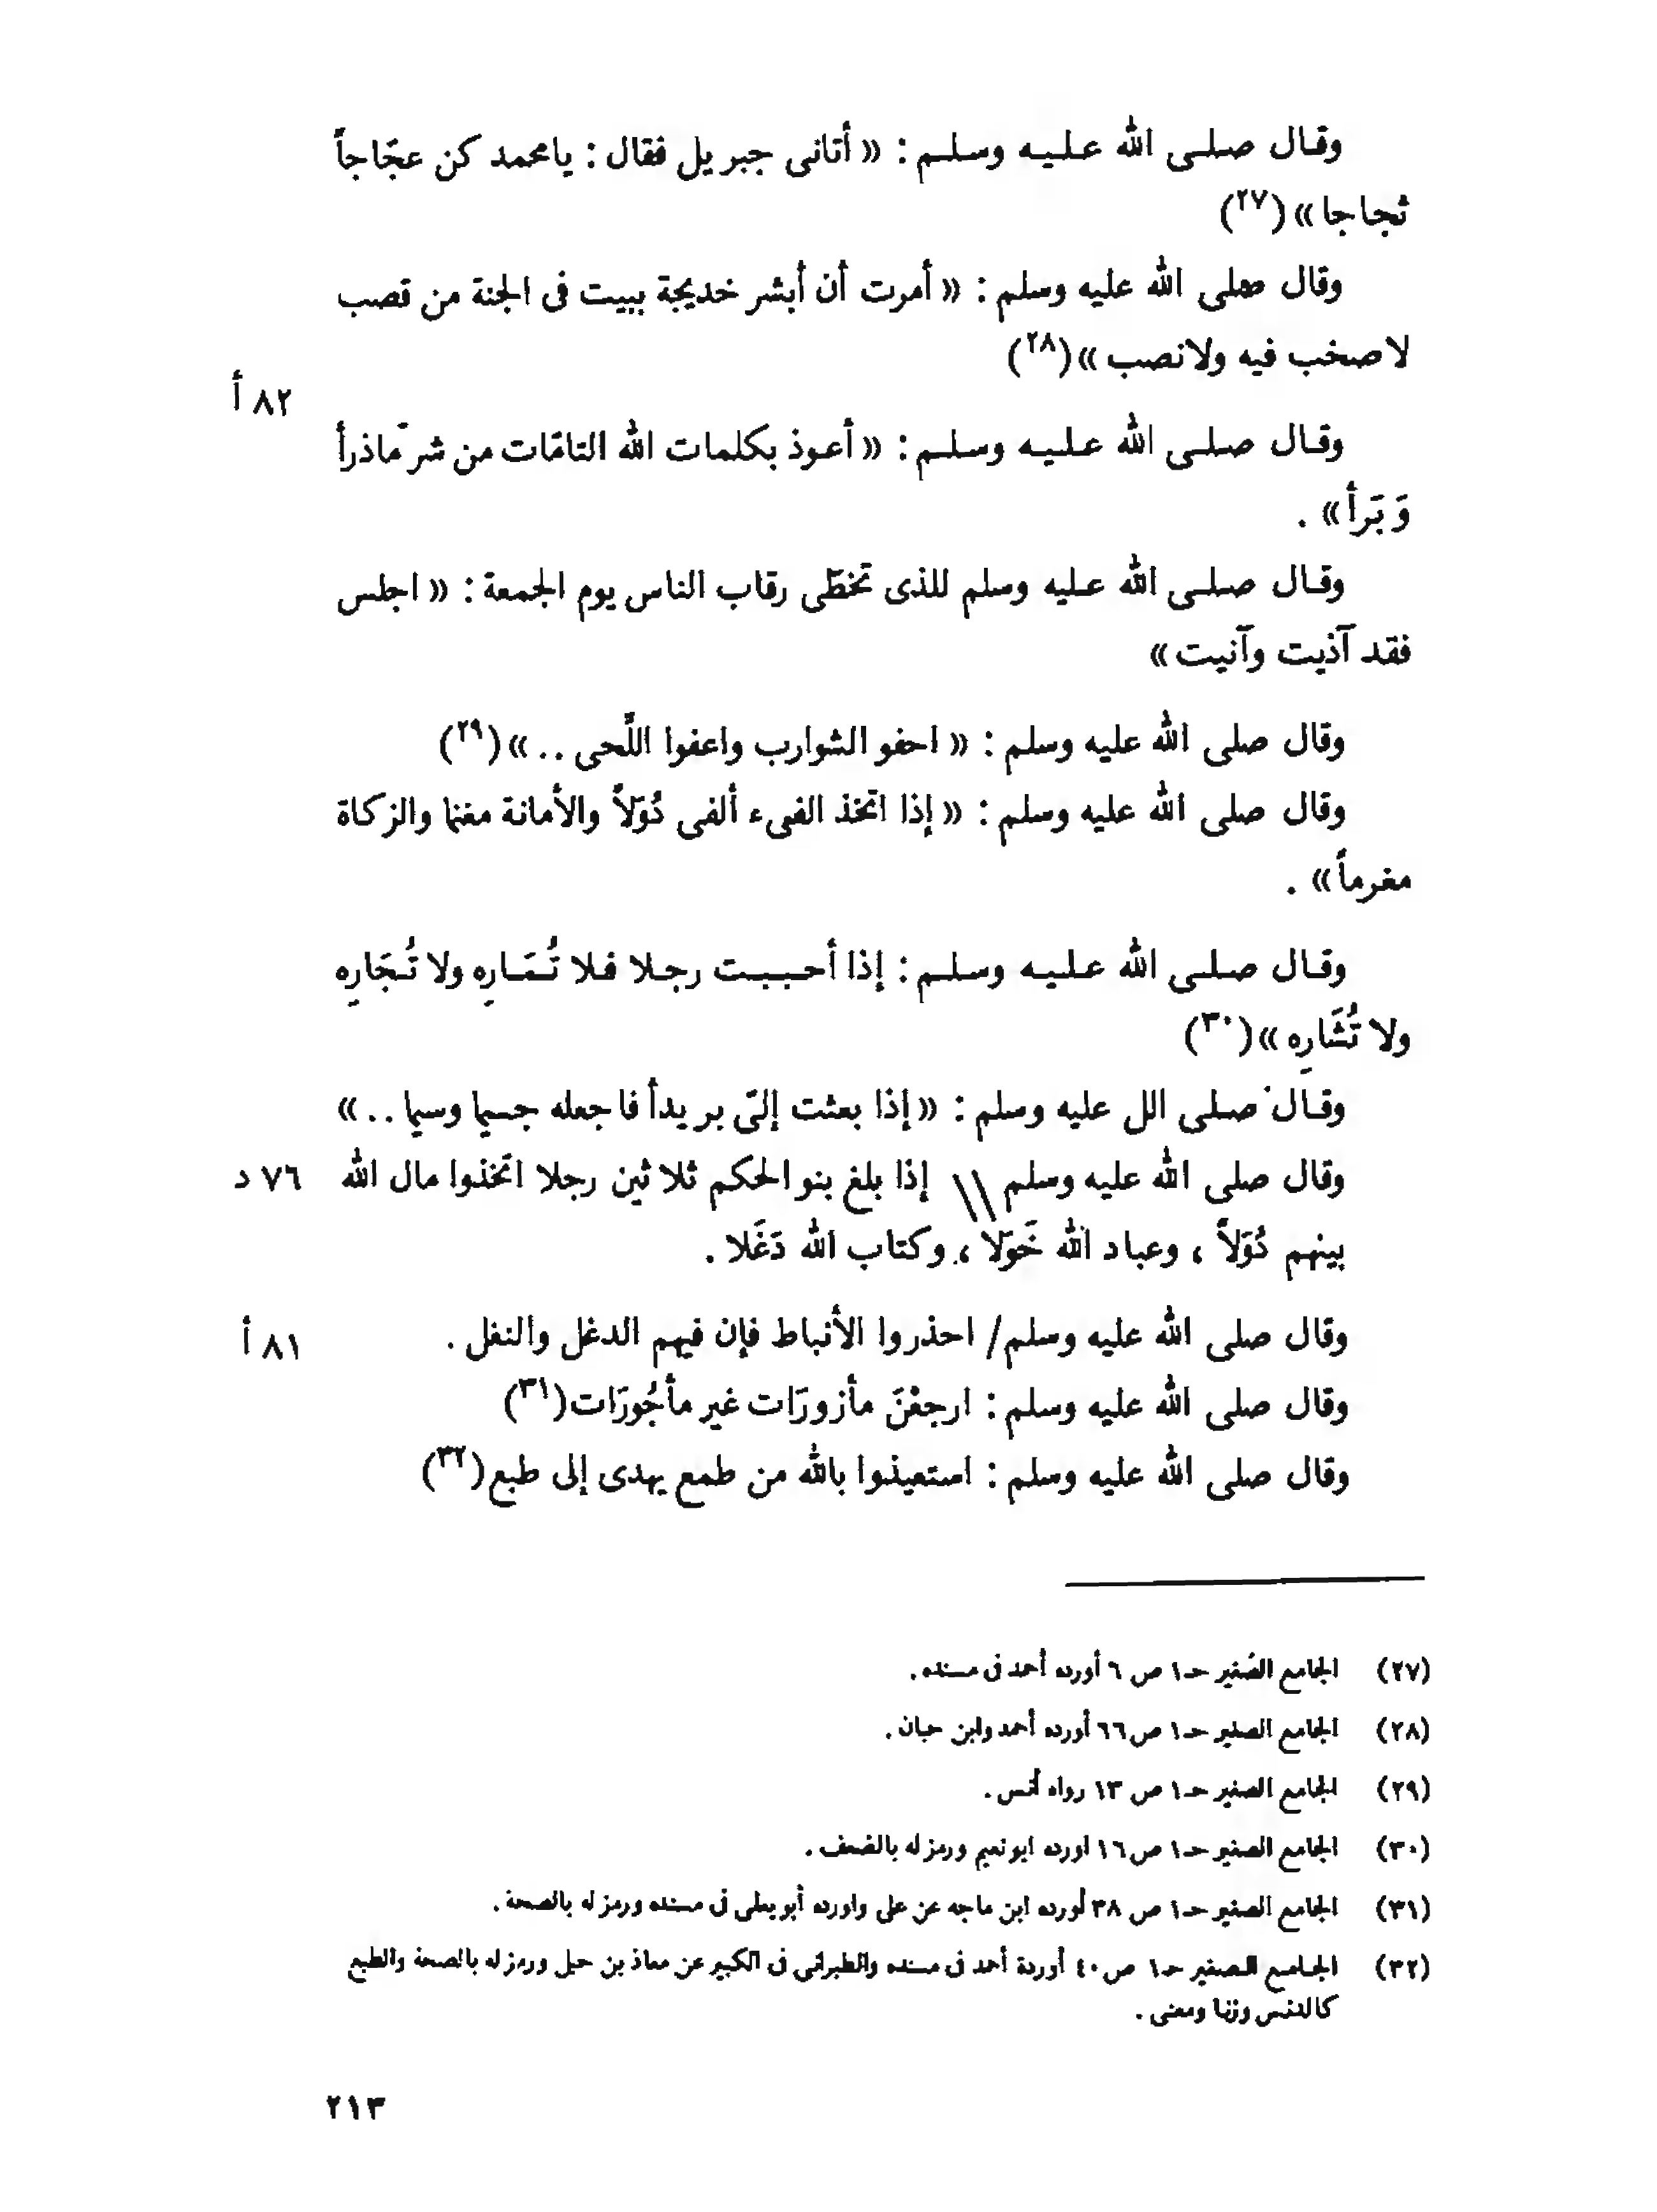 وقال صلى الله عليه وسلم : « أتانى جبريل فقال : يامحمد كن عجّاجاً
ثجاجا » (٢٧)
وقال صلى الله عليه وسلم : « أمرت أن أبشر خديجة ببيت فى الجنة من قصب
لا صخب فيه ولانصب » (٢٨)
٨٢ أ
وقال صلى الله عليه وسلم : « أعوذ بكلمات الله التامّات من شر ماذرأ
وَبَرأ » .
وقال صلى الله عليه وسلم للذى تخطّى رقاب الناس يوم الجمعة : « اجلس
فقد آذيت وآنيت »
وقال صلى الله عليه وسلم : « احفو الشوارب واعفوا اللَّحى .. » (٢٩)
وقال صلى الله عليه وسلم : « إذا اتخذ الفىء ألفى دُوَلاً والأمانة مغنما والزكاة
مغرماً » .
وقال صلى الله عليه وسلم : إذا أحببت رجلا فلا تُمَارِه ولا تُجَارِه
ولا تُشَارِه » (٣٠)
وقال صلى الل عليه وسلم : « إذا بعثت إلىّ بريدأ فاجعله جسيما وسيما .. »
وقال صلى الله عليه وسلم \\ إذا بلغ بنو الحكم ثلاثين رجلا اتخذوا مال الله ٧٦ د
بينهم دُوَلاً ، وعباد الله خَوَلا ، وكتاب الله دَغَلا .
وقال صلى الله عليه وسلم / احذروا الأنباط فإن فيهم الدغل والنغل . ٨١ أ
وقال صلى الله عليه وسلم : ارجعْنَ مأزورَات غير مأجُورَات (٣١)
وقال صلى الله عليه وسلم : استعيذوا بالله من طمع يهدى إلى طبع (٣٢)
(٢٧) الجامع الصغير حـ١ ص ٦ أورده أحمد فى مسنده .
(٢٨) الجامع الصغير حـ١ ص٦٦ أورده أحمد وابن حبان .
(٢٩) الجامع الصغير حـ١ ص ١٣ رواه أنس .
(٣٠) الجامع الصغير حـ١ ص١٦ اورده ابو نعيم ورمز له بالضعف .
(٣١) الجامع الصغير حـ١ ص ٣٨ أورده ابن ماجه عن على واورده أبو يعلى فى مسنده ورمز له بالصحة .
(٣٢) الجامع الصغير حـ١ ص٤٠ أوردة أحمد فى مسنده والطبرانى فى الكبير عن معاذ بن جبل ورمز له بالصحة والطبع
كالدنس وزنا ومعنى .
٢١٣